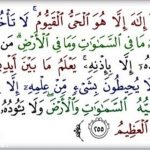 إِلَٰهَ إِلَّا هُوَ الْحَيُّ الْقَيُّومُ ۚ لَا تَأْخُذُ
مَا فِي السَّمَٰوَٰتِ وَمَا فِي الْأَرْضِ ۗ مَن
إِلَّا بِإِذْنِهِۦ ۚ يَعْلَمُ مَا بَيْنَ أَيْدِي
لَا يُحِيطُونَ بِشَيْءٍ مِّنْ عِلْمِهِۦٓ إِلَّا
السَّمَٰوَٰتِ وَالْأَرْضَ ۖ وَلَا يَئُودُهُۥ
الْعَظِيمُ ٢٥٥